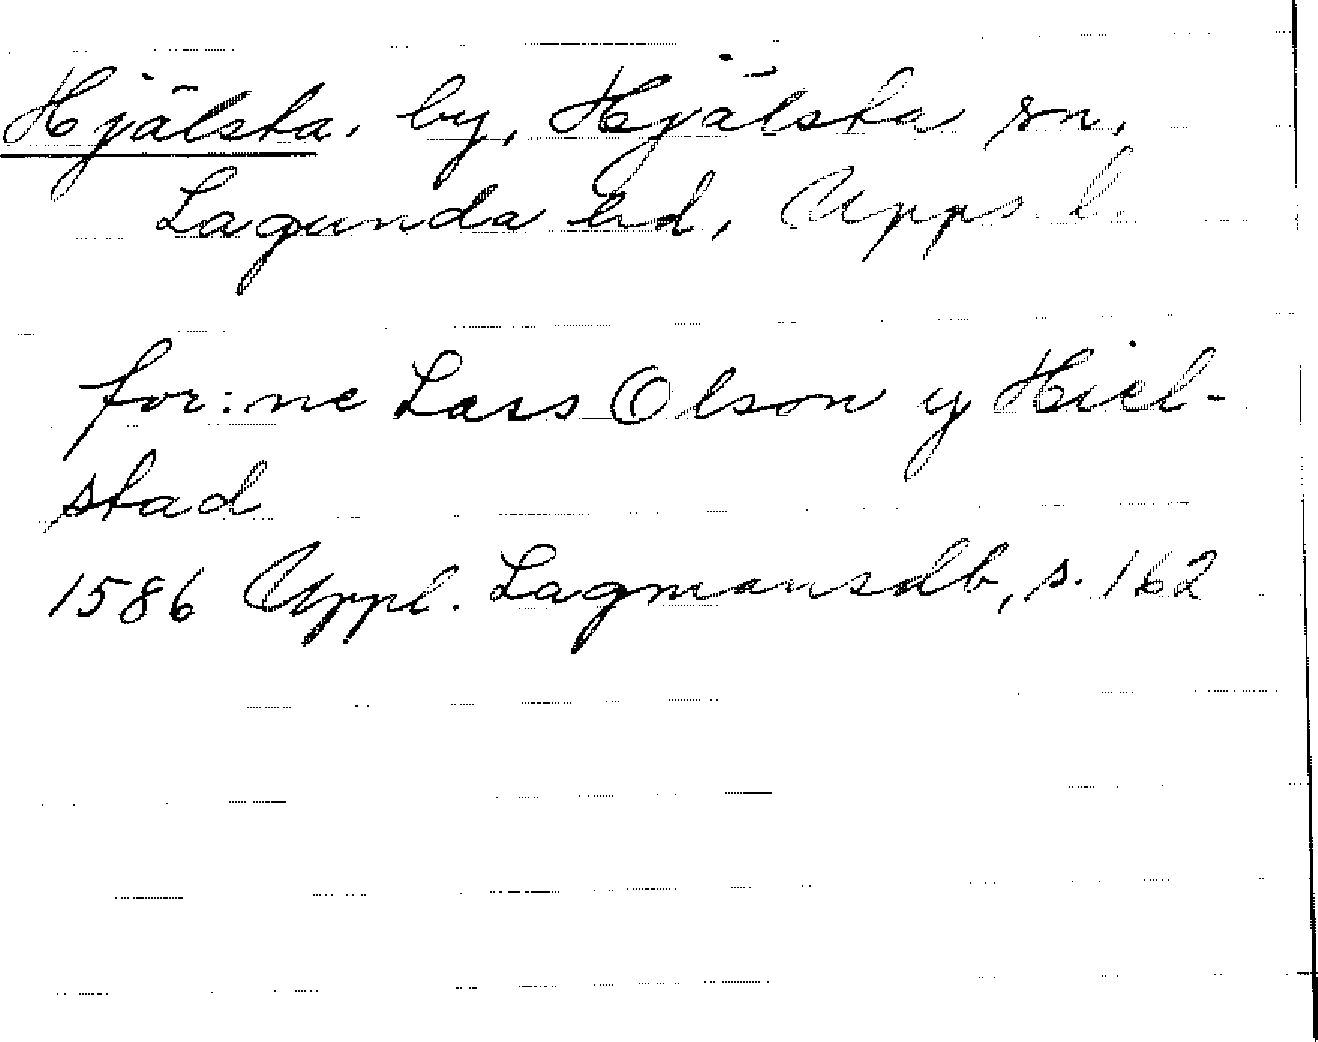 Hjälsta, by, Hjälsta sn,
Lagunda hd, Upps l.
for:ne Lars Olson y Hiel-
stad
1586 Uppl. Lagmansdb, s. 162